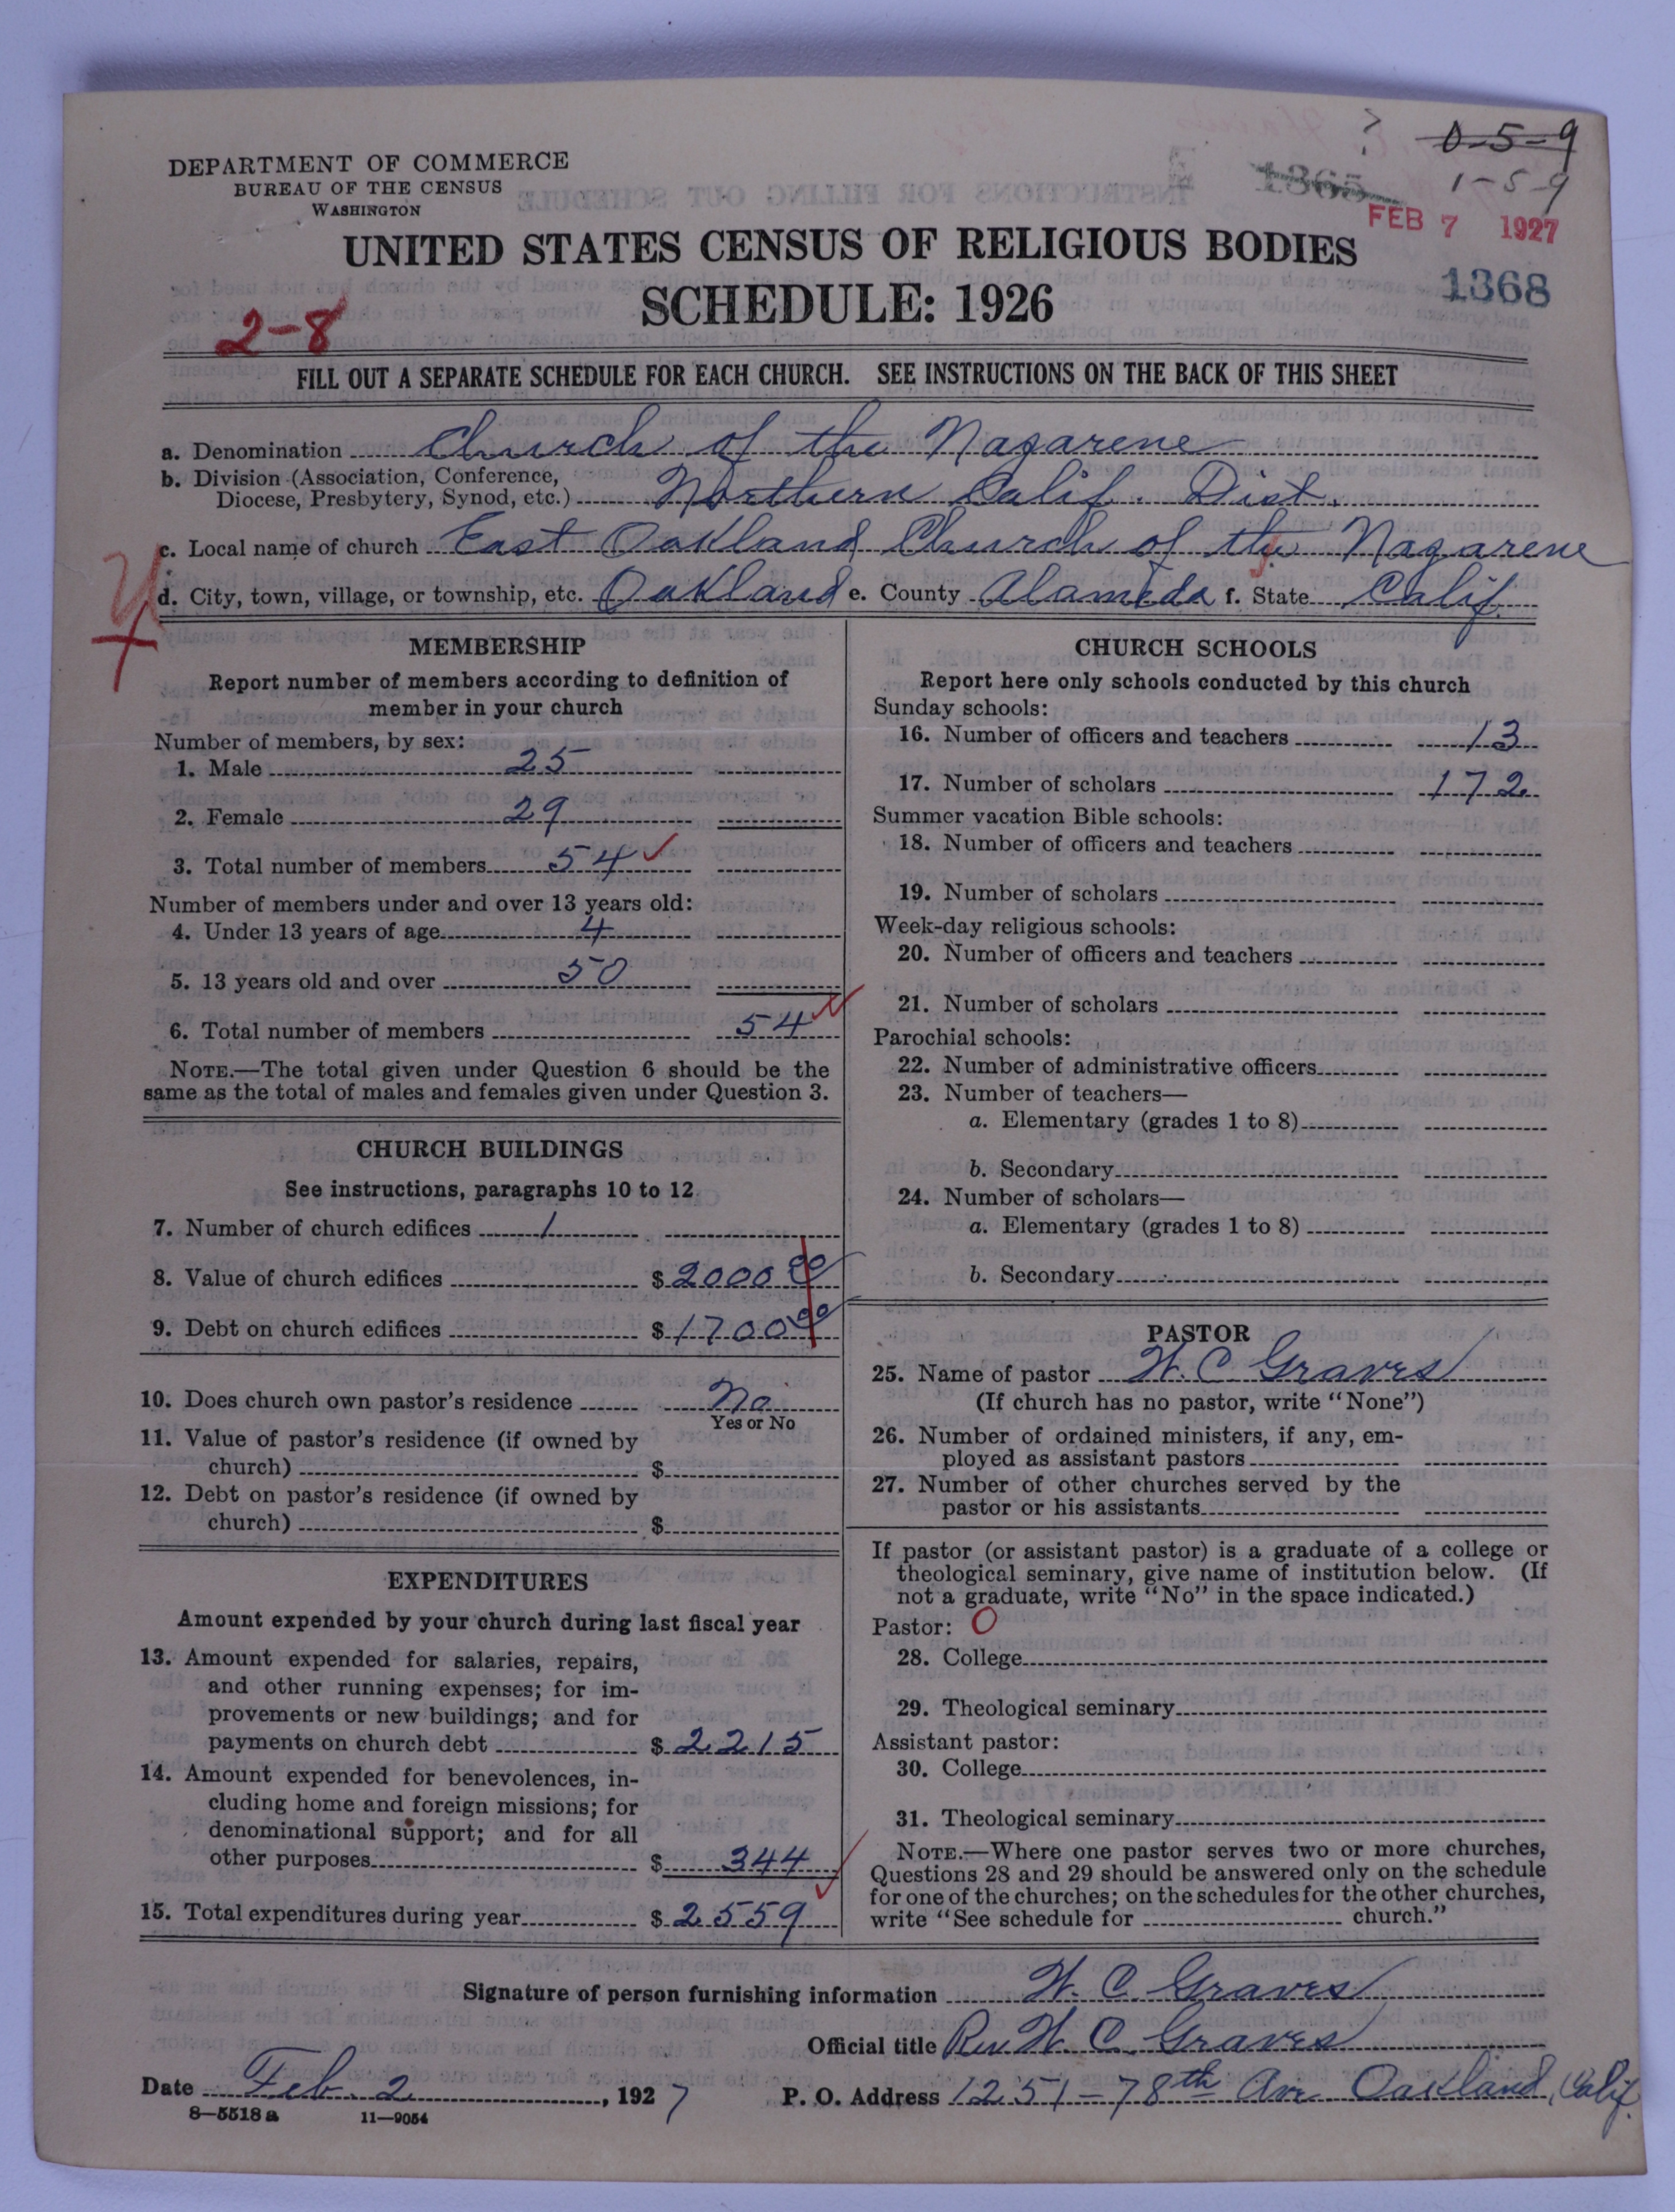 0-5-9
1-5-9
DEPARTMENT OF COMMERCE
BUREAU OF THE CENSUS
WASHINGTON
1365
FEB 7 1927
1368
UNITED STATES CENSUS OF RELIGIOUS BODIES
SCHEDULE: 1926
2-8
FILL OUT A SEPARATE SCHEDULE FOR EACH CHURCH. SEE INSTRUCTIONS ON THE BACK OF THIS SHEET
a. Denomination Church of the Nazarene
b. Division (Association, Conference,
Diocese, Presbytery, Synod, etc.) Northern Calif. Dist.
c. Local name of church East Oakland Church of the Nazarene
d. City, town, village, or township, etc. Oakland e. County Alameda f. State Calif.
MEMBERSHIP
Report number of members according to definition of
member in your church
Number of members, by sex:
1. Male 25
2. Female 29
3. Total number of members 54
Number of members under and over 13 years old:
4. Under 13 years of age 4
5. 13 years old and over 50
6. Total number of members 54
NOTE.—The total given under Question 6 should be the
same as the total of males and females given under Question 3.
CHURCH BUILDINGS
See instructions, paragraphs 10 to 12
7. Number of church edifices 1
8. Value of church edifices $ 2000 00
9. Debt on church edifices $ 1700 00
10. Does church own pastor's residence No
Yes or No
11. Value of pastor's residence (if owned by
church) $
12. Debt on pastor's residence (if owned by
church) $
EXPENDITURES
Amount expended by your church during last fiscal year
13. Amount expended for salaries, repairs,
and other running expenses; for im-
provements or new buildings; and for
payments on church debt $ 2215
14. Amount expended for benevolences, in-
cluding home and foreign missions; for
denominational support; and for all
other purposes $ 344
15. Total expenditures during year $ 2559
CHURCH SCHOOLS
Report here only schools conducted by this church
Sunday schools:
16. Number of officers and teachers 13
17. Number of scholars 172
Summer vacation Bible schools:
18. Number of officers and teachers
19. Number of scholars
Week-day religious schools:
20. Number of officers and teachers
21. Number of scholars
Parochial schools:
22. Number of administrative officers
23. Number of teachers—
a. Elementary (grades 1 to 8)
b. Secondary
24. Number of scholars—
a. Elementary (grades 1 to 8)
b. Secondary
PASTOR
25. Name of pastor W. C. Graves
(If church has no pastor, write "None")
26. Number of ordained ministers, if any, em-
ployed as assistant pastors
27. Number of other churches served by the
pastor or his assistants
If pastor (or assistant pastor) is a graduate of a college or
theological seminary, give name of institution below. (If
not a graduate, write "No" in the space indicated.)
Pastor: O
28. College
29. Theological seminary
Assistant pastor:
30. College
31. Theological seminary
NOTE.—Where one pastor serves two or more churches,
Questions 28 and 29 should be answered only on the schedule
for one of the churches; on the schedules for the other churches,
write "See schedule for church."
Signature of person furnishing information W. C. Graves
Official title Rev W. C. Graves
Date Feb. 2, 1927 P. O. Address 1251-78th Ave Oakland, Calif.
8-5518a 11-9054